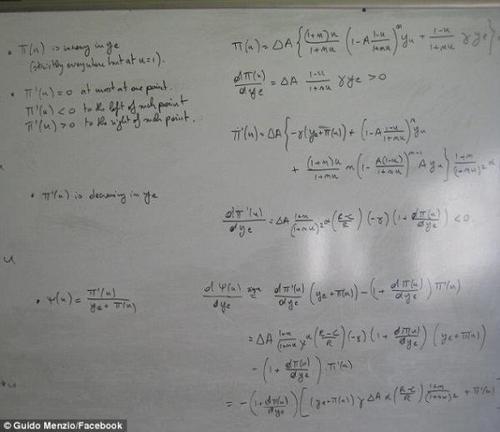 • π(u) is increasing in ye
(strictly everywhere but at u=1).
• π'(u) = 0 at most at one point.
π'(u) < 0 to the left of such point
π'(u) > 0 to the right of such point.
π(u) = ΔA { (1+m)u / 1+mu (1 - A 1-u / 1+mu)^m yu + 1-u / 1+mu γ ye }
dπ(u) / dye = ΔA 1-u / 1+mu γ ye > 0
π'(u) = ΔA { -γ(ye+π(u)) + (1 - A 1-u / 1+mu)^m yu
+ (1+m)u / 1+mu m (1 - A(1-u) / 1+mu)^m-1 A yu } 1+m / (1+mu)²
• π'(u) is decreasing in ye
dπ'(u) / dye = ΔA 1+m / (1+mu)² α (R-C / R) (-γ) (1 + dπ(u) / dye) < 0.
• ψ(u) = π'(u) / ye + π(u)
dψ(u) / dye sign = dπ'(u) / dye (ye + π(u)) - (1 + dπ(u) / dye) π'(u)
= ΔA 1+m / (1+mu)² α (R-C / R) (-γ) (1 + dπ(u) / dye) (ye + π(u))
- (1 + dπ(u) / dye) π'(u)
= - (1 + dπ(u) / dye) [ (ye + π(u)) γ ΔA α (R-C / R) 1+m / (1+mu)² + π'(u)
© Guido Menzio/Facebook